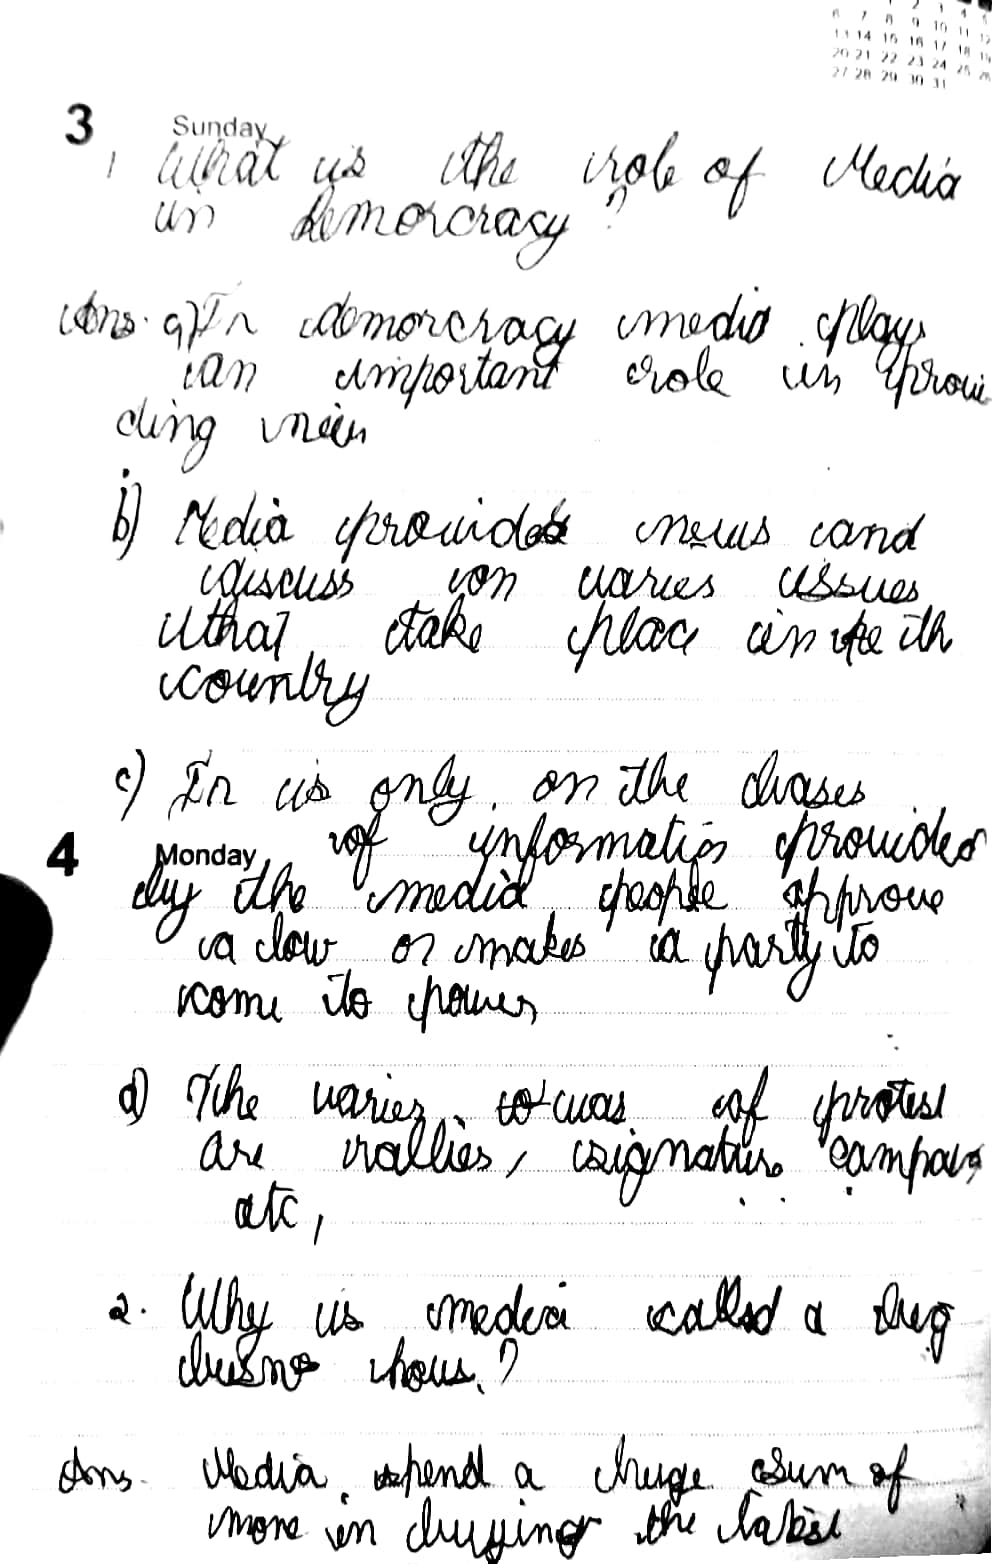 1 2 3 4 5
6 7 8 9 10 11 12
13 14 15 16 17 18 19
20 21 22 23 24 25 26
27 28 29 30 31
3 Sunday
1 What is the role of Media
in Demorcracy ?
Ans. a) In demorcracy media plays
an important role in provi
ding
b) Media provides news and
discuss on varies issues
that take place in the
country
c) In is only on the bases
4 Monday of information provided
by the media people approve
a law or makes a party to
come to power
d) The varies of protest
are rallies, signature
etc,
2. Why is media called a big
house ?
Ans. Media spend a huge sum of
mone in buying the latest